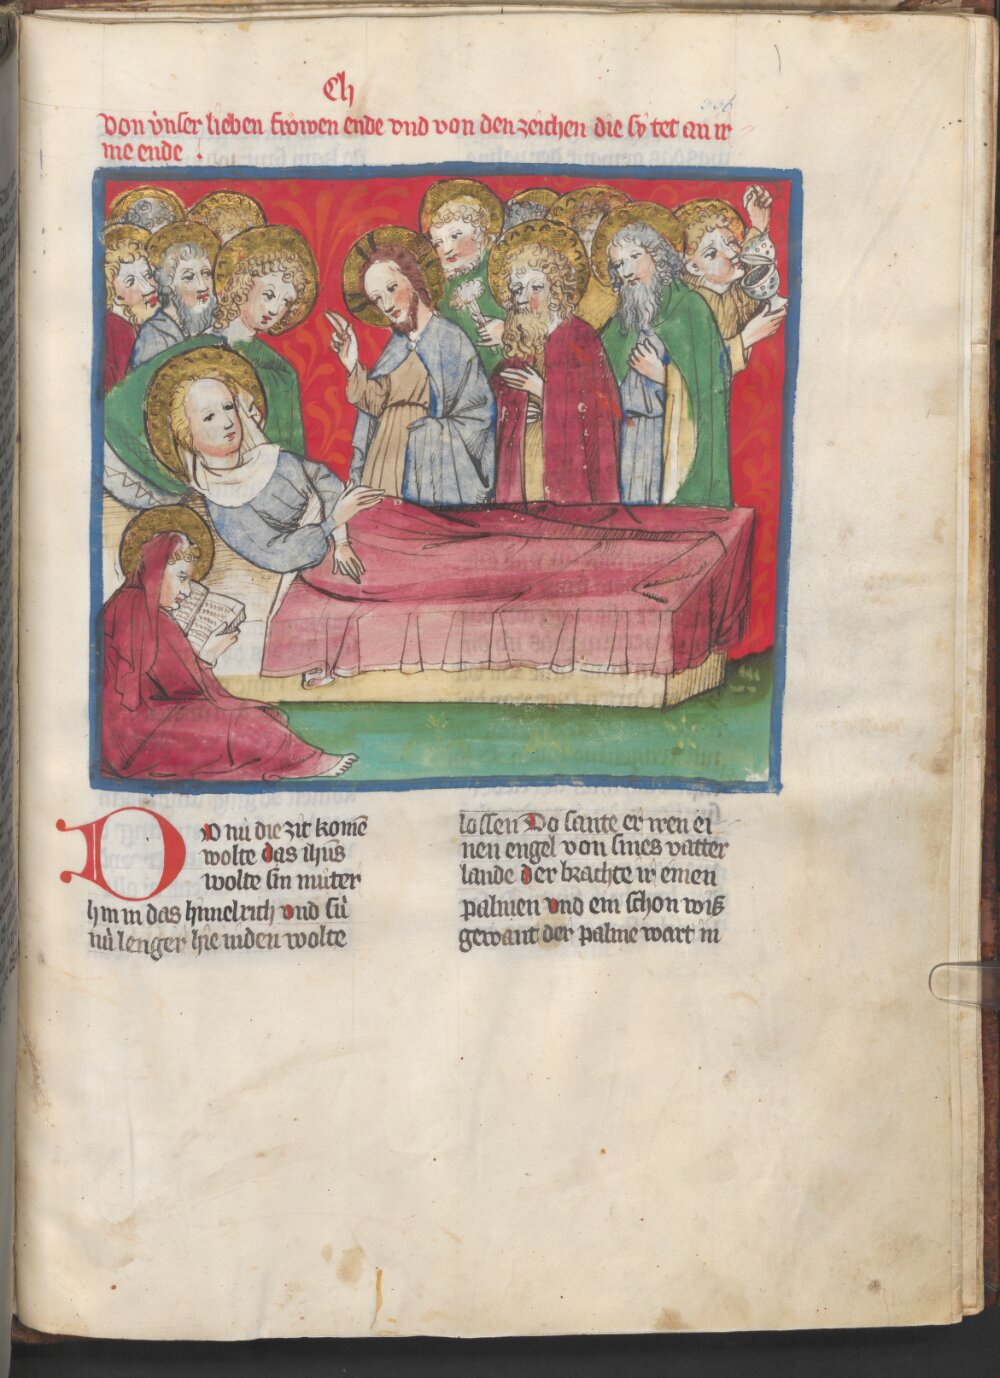 Ch
336
Von v̓nser lieben frowen ende vnd von den zeichen die sy tet an ir
me ende .
DO nu̓ die zit kome̅
wolte das ihu̅s
wolte sin mu̓ter
hin in das himelrich vnd su̓
nu̓ lenger hie niden wolte
lossen Do sante er iren ei
nen engel von sines vatter
lande der brachte ir einen
palmen vnd ein schon wiß
gewant der palme wart in